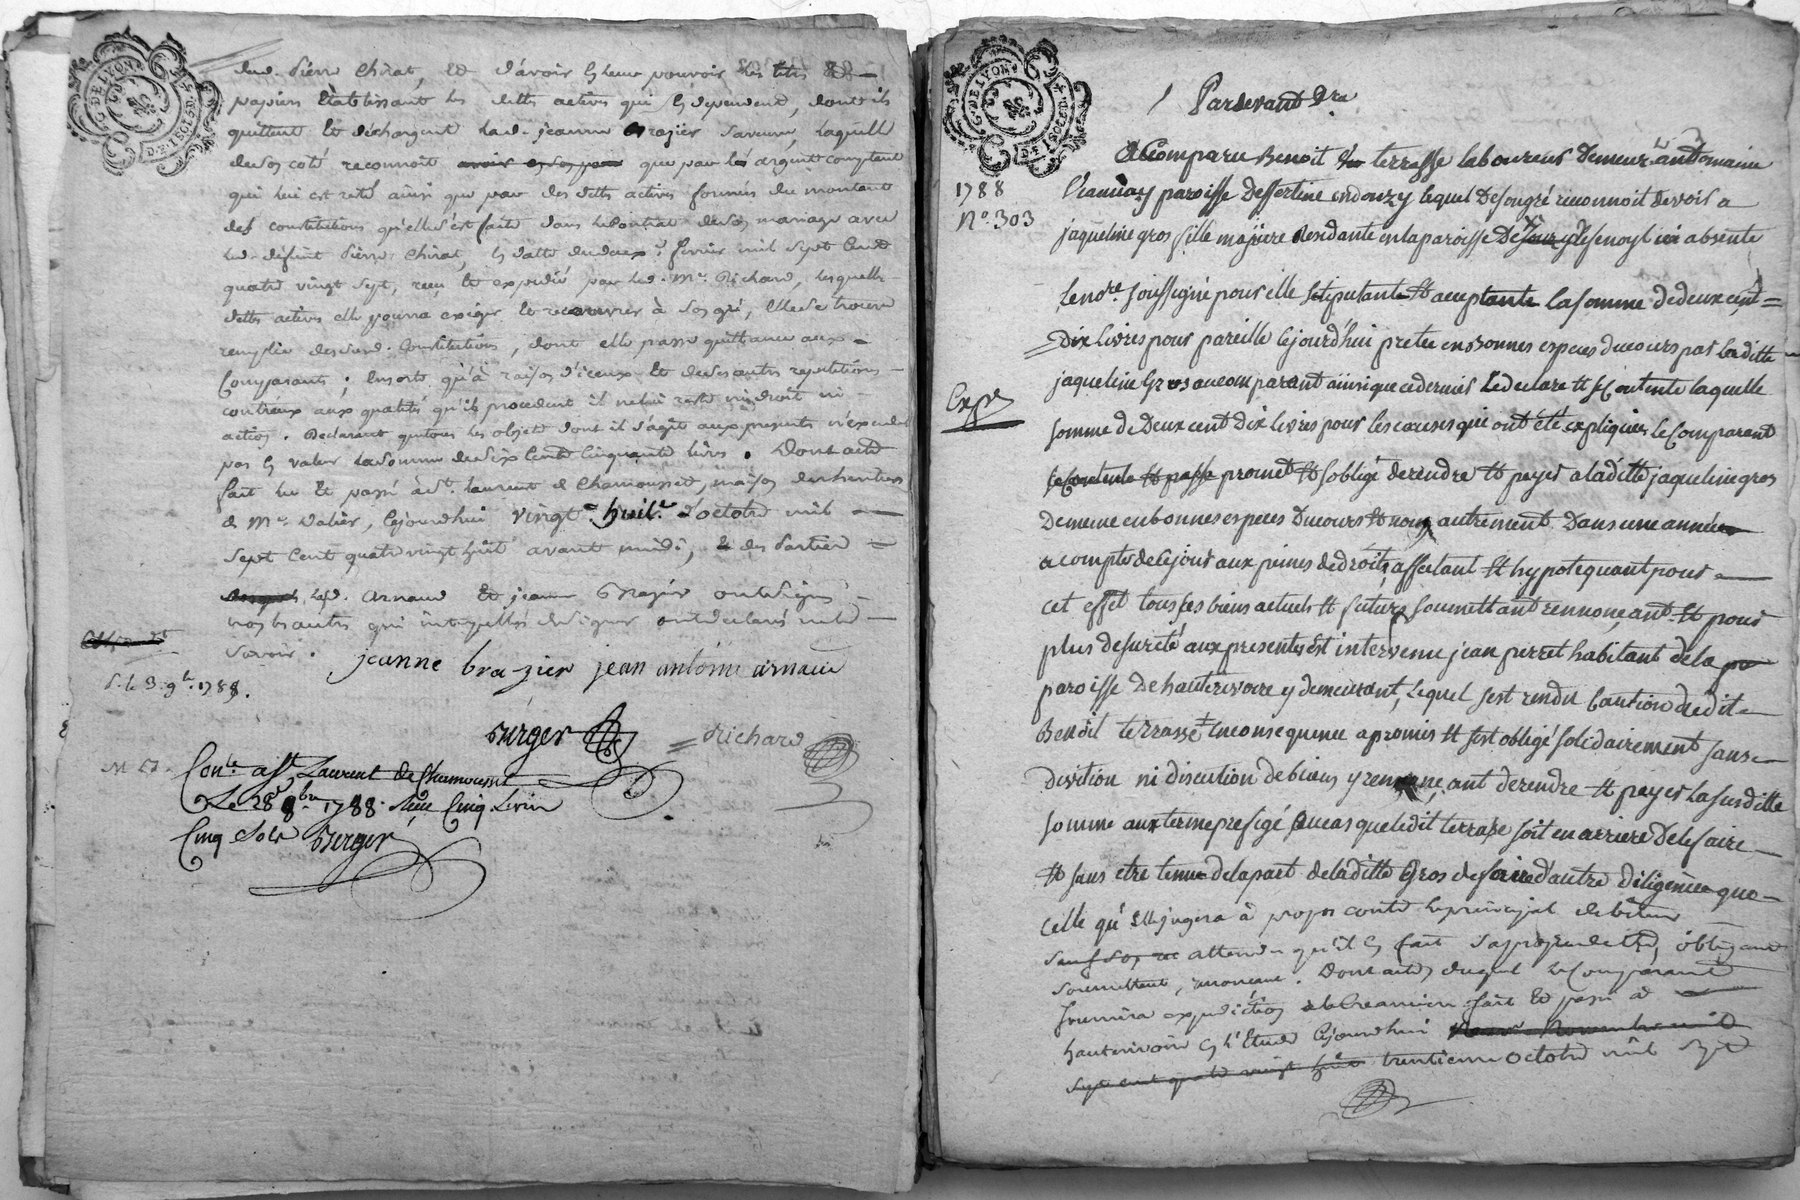 G. DE LYON
D. F. 1 SOL 8 D.
dud. Pierre Chirat, Et d'avoir En leur pouvoir les titres Et
papiers Etablissant les dettes actives qui En dependent, dont ils
quittent Et dechargent lad. jeanne Brazier Saveuve, laquelle
deson coté reconnoit que par argent comptant
qui lui est resté ainsi que par des dettes actives formées du montant
des constitutions qu'elle s'est faite dans le Contrat deson mariage avec
led. défunt Pierre Chirat, En datte dudeux fevrier mil Sept Cent
quatre vingt Sept, recu Et expedié par led. Me. Richard, lesquelles
dettes actives elle pourra exiger Et recouvrer à Son gré, Elle Se trouve
remplie desesd. Constitutions, dont elle passe quittance aux
Comparants ; Ensorte qu'à raison d'iceux Et deses autres repetitions
contr'eux aux qualités qu'ils procedent il nelui reste ni droit ni
action. Declarant que tous les objets dont il s'agit aux presentes n'excedent
pas En valeur la Somme de Six Cents Cinquante livres. Dont acte
fait lu Et passé à St. Laurent de Chamousset, maison des heritiers
de Me. Valier, Cejourdhui vingt huit. d'octobre mil
Sept Cent quatre vingt huit avant midi, Et des Parties
led. Arnaud Et jeanne Brazier ont Signé
nos les autres qui interpellés de Signer ont declaré ne le
Savoir.
jeanne brazier jean antoine arnaud
S. le 3. 9bre. 1788.
Berger Richard
Conlé a St Laurent de Chamousset
Le 28 8bre 1788. Reçu Cinq Livres
Cinq Sols Berger
G. DE LYON
D. F. 1 SOL 8 D.
Pardevant Nre
A Comparu Benoit terrasse laboureur Demeurant au Domaine
1788
No. 303
paroisse Dessertine endonzy lequel Desongré reconnoit devoir a
jaqueline gros fille majeure Residante en la paroisse De absente
Le nore. Soussigné pour elle Stipulant Et acceptant la Somme Dedeux cent
Dix livres pour pareille cejourd'hui pretée en Bonnes especes Ducours par laditte
jaqueline Gros aucomparant ainsi que cedernier Ledeclare Et Se Contente laquelle
Expé
Somme de Deux cent Dix livres pour les causes qui ont été expliquées le Comparant
Se Contente Et passe promet Et S'oblige derendre Et payer a laditte jaqueline gros
Dememe en bonnes especes Ducours Et non autrement Dans une année
a compter de Cejour aux peines de droits, affectant Et hypotequant pour
cet effet tous Ses biens actuels Et futurs Soumettant rennonçant. Et pour
plus de Sureté aux presentes Est intervenu jean perret habitant de la
paroisse De hauterivoire y demeurant, Lequel S'est rendu Caution dudit
Benoit terrasse En consequence a promis Et S'est obligé Solidairement Sans
division ni discution de biens y rennonçant derendre Et payer La Susditte
Somme aux terme prefigé au cas que ledit terrasse Soit en arriere De le faire
Et Sans etre tenue de la part de laditte Gros de faire d'autre diligence que
celle qu'Elle jugera à propos contre le principal debiteur
attendu qu'il En fait Sa propre dette, obligeant
Soumettant, renonceant. Dont acte, duquel le Comparant
fournira expedition à la Creanciere fait Et passé à
hauterivoire En l'Etude Cejourdhui
Sept cent quatre vingt huit trentieme octobre mil Sept